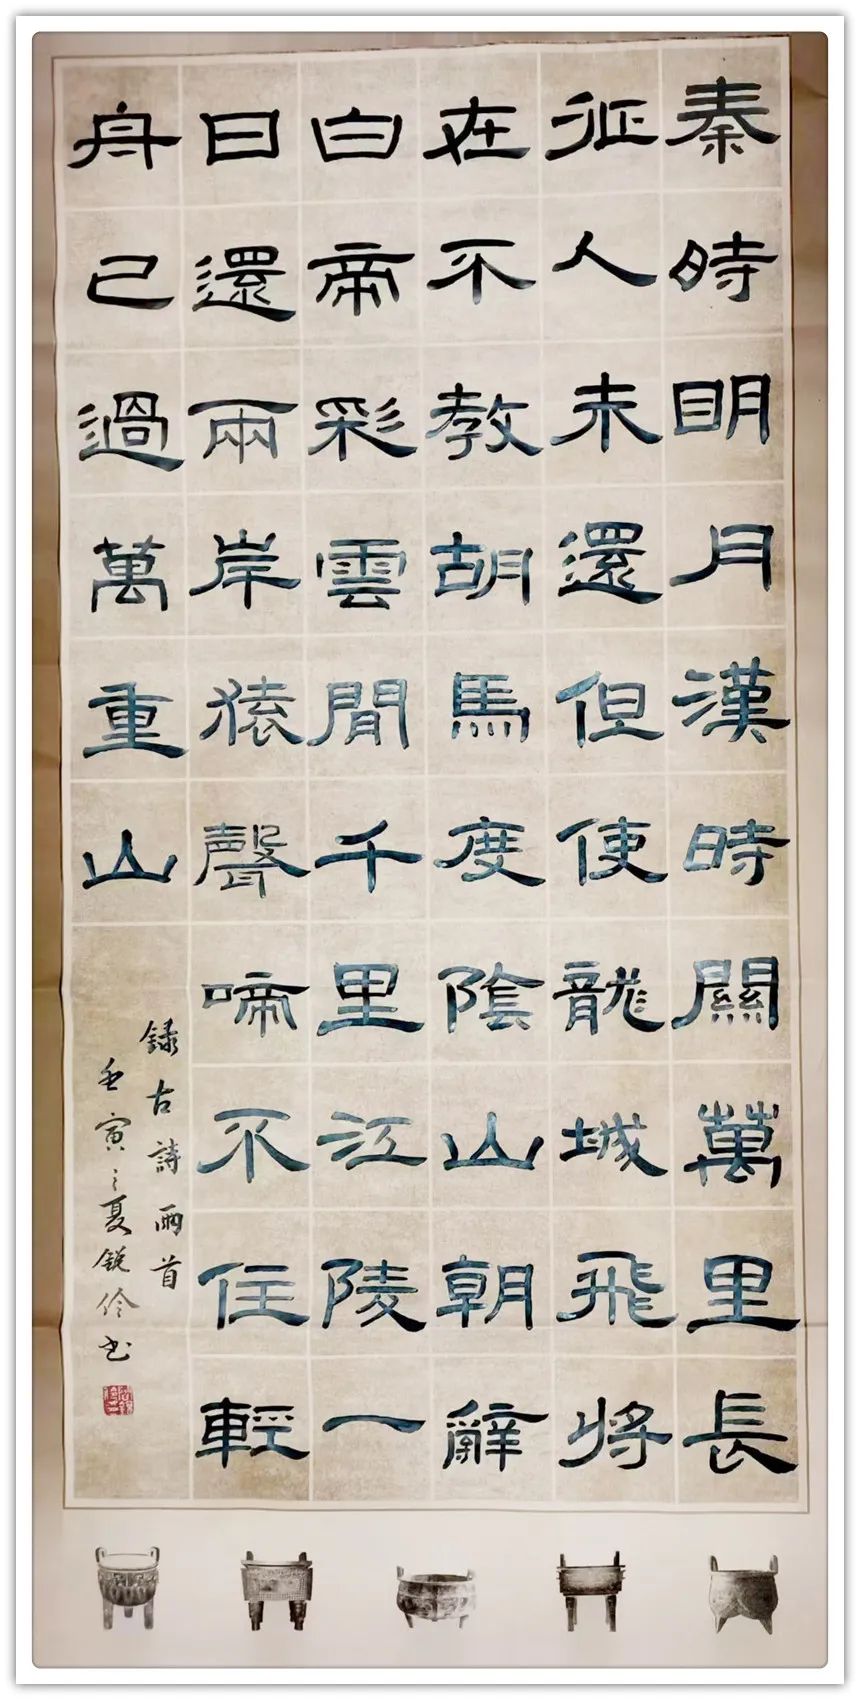 秦時明月漢時關萬里長
征人未還但使龍城飛將
在不教胡馬度陰山朝辭
白帝彩雲間千里江陵一
日還兩岸猿聲啼不住輕
舟已過萬重山
録古詩兩首
壬寅之夏銳伶书